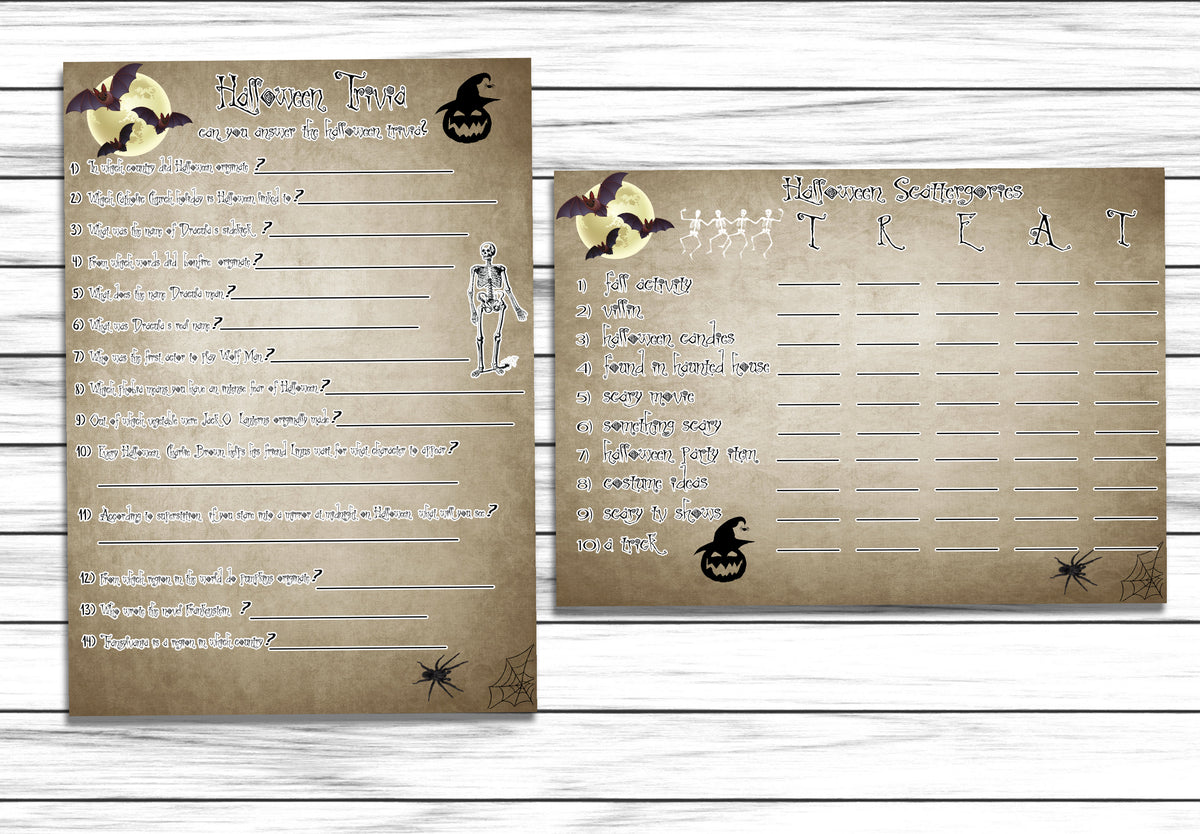 Halloween Trivia
can you answer the halloween trivia?
1) In which country did Halloween originate ?
2) Which Catholic Church holiday is Halloween linked to?
3) What was the name of Dracula's sidekick ?
4) From which words did bonfire originate?
5) What does the name Dracula mean?
6) What was Dracula's real name?
7) Who was the first actor to play Wolf Man?
8) Which phobia means you have an intense fear of Halloween?
9) Out of which vegetable were Jack O Lanterns originally made?
10) Every Halloween Charlie Brown helps his friend Linus wait for what character to appear?
11) According to superstition, if you stare into a mirror at midnight on Halloween, what will you see?
12) From which region in the world do pumpkins originate?
13) Who wrote the novel Frankenstein ?
14) Transylvania is a region in which country?
Halloween Scattergories
T R E A T
1) fall activity
2) villin
3) halloween candies
4) found in haunted house
5) scary movie
6) something scary
7) halloween party item
8) costume ideas
9) scary tv shows
10) a trick